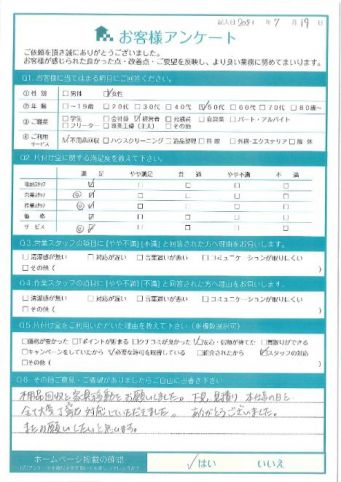 記入日 2021年 7月 19日
お客様アンケート
ご依頼を頂き誠にありがとうございました。
お客様が感じられた良かった点・改善点・ご要望を反映し、より良い業務に努めてまいります。
Q1. お客様に当てはまる項目にご回答ください。
①性別 □男性 ☑女性
②年齢 □~19歳 □20代 □30代 □40代 ☑50代 □60代 □70代 □80歳~
③ご職業 □学生 □会社員 ☑経営者 □公務員 □自営業 □パート・アルバイト
□フリーター □専業主婦(主夫) □その他
④ご利用サービス ☑不用品回収 □ハウスクリーニング □遺品整理 □買取 □外構・エクステリア □解体
Q2. 片付け堂に関する満足度を教えて下さい。
満足 やや満足 普通 やや不満 不満
電話スタッフ ☑ □ □ □ □
営業スタッフ ☑ □ □ □ □
作業スタッフ ☑ □ □ □ □
価格 ☑ □ □ □ □
サービス ☑ □ □ □ □
Q3. 営業スタッフの項目に「やや不満」「不満」と回答された方へ理由をお伺いします。
□清潔感が無い □対応が遅い □言葉遣いが悪い □コミュニケーションが取りにくい
□その他( )
Q4. 作業スタッフの項目に「やや不満」「不満」と回答された方へ理由をお伺いします。
□清潔感が無い □対応が遅い □言葉遣いが悪い □コミュニケーションが取りにくい
□その他( )
Q5. 片付け堂をご利用いただいた理由を教えて下さい(※複数選択可)
□価格が安かった □Tポイントが貯まる □クチコミが良かった ☑安心・信頼が持てた □買取りができる
□キャンペーンをしていたから ☑必要な許可を取得している □紹介されたから ☑スタッフの対応
□その他( )
Q6. その他ご意見・ご要望がありましたらご自由にお書き下さい
不用品回収と家具移動をお願いしました。下見、見積り、本作業の日と
全て大変丁寧に対応していただきました。ありがとうございました。
またお願いしたいと思います。
ホームページ掲載の確認
はい いいえ